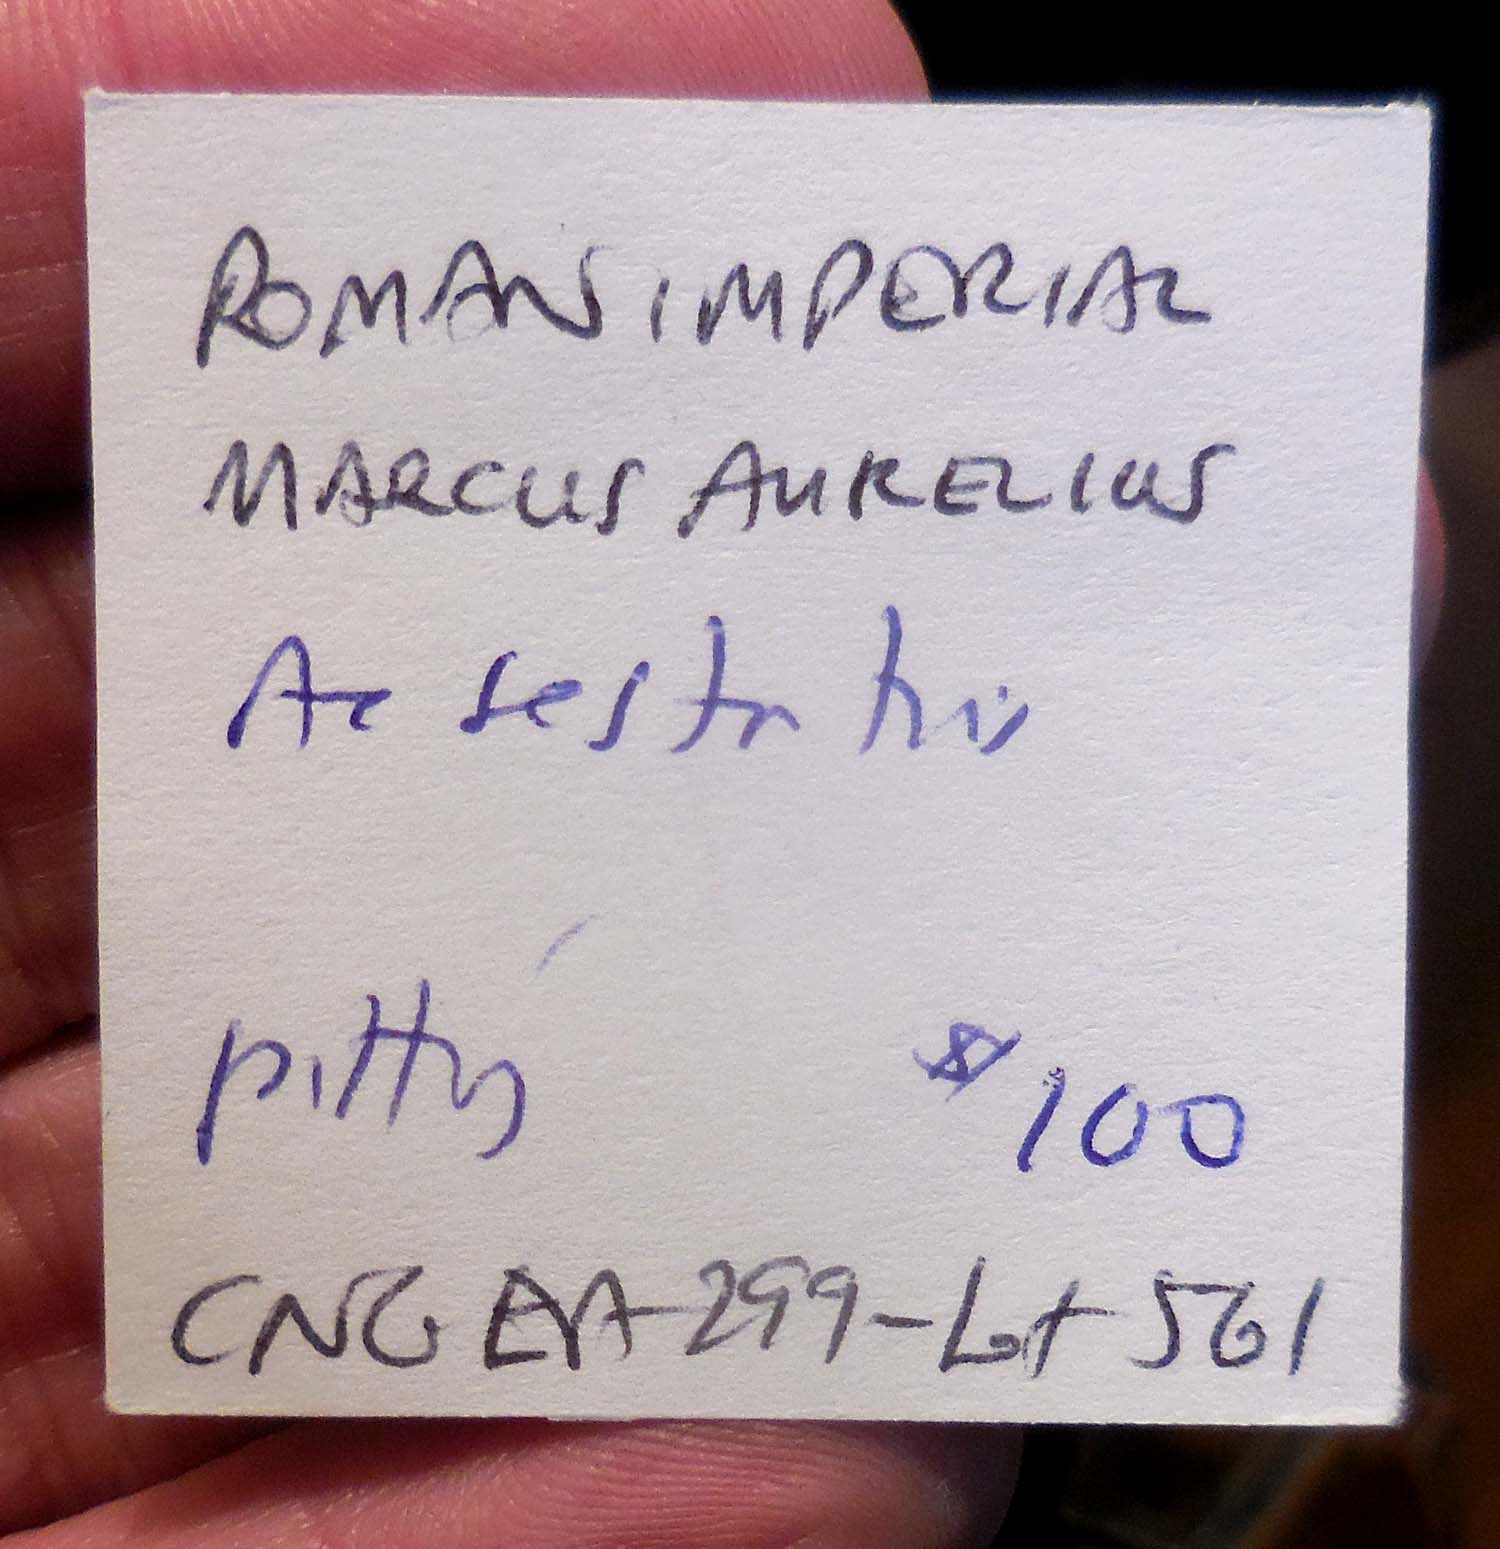 ROMAN IMPERIAL
MARCUS AURELIUS
Ae sestertius
pitting $100
CNG EA-299-Lot 561